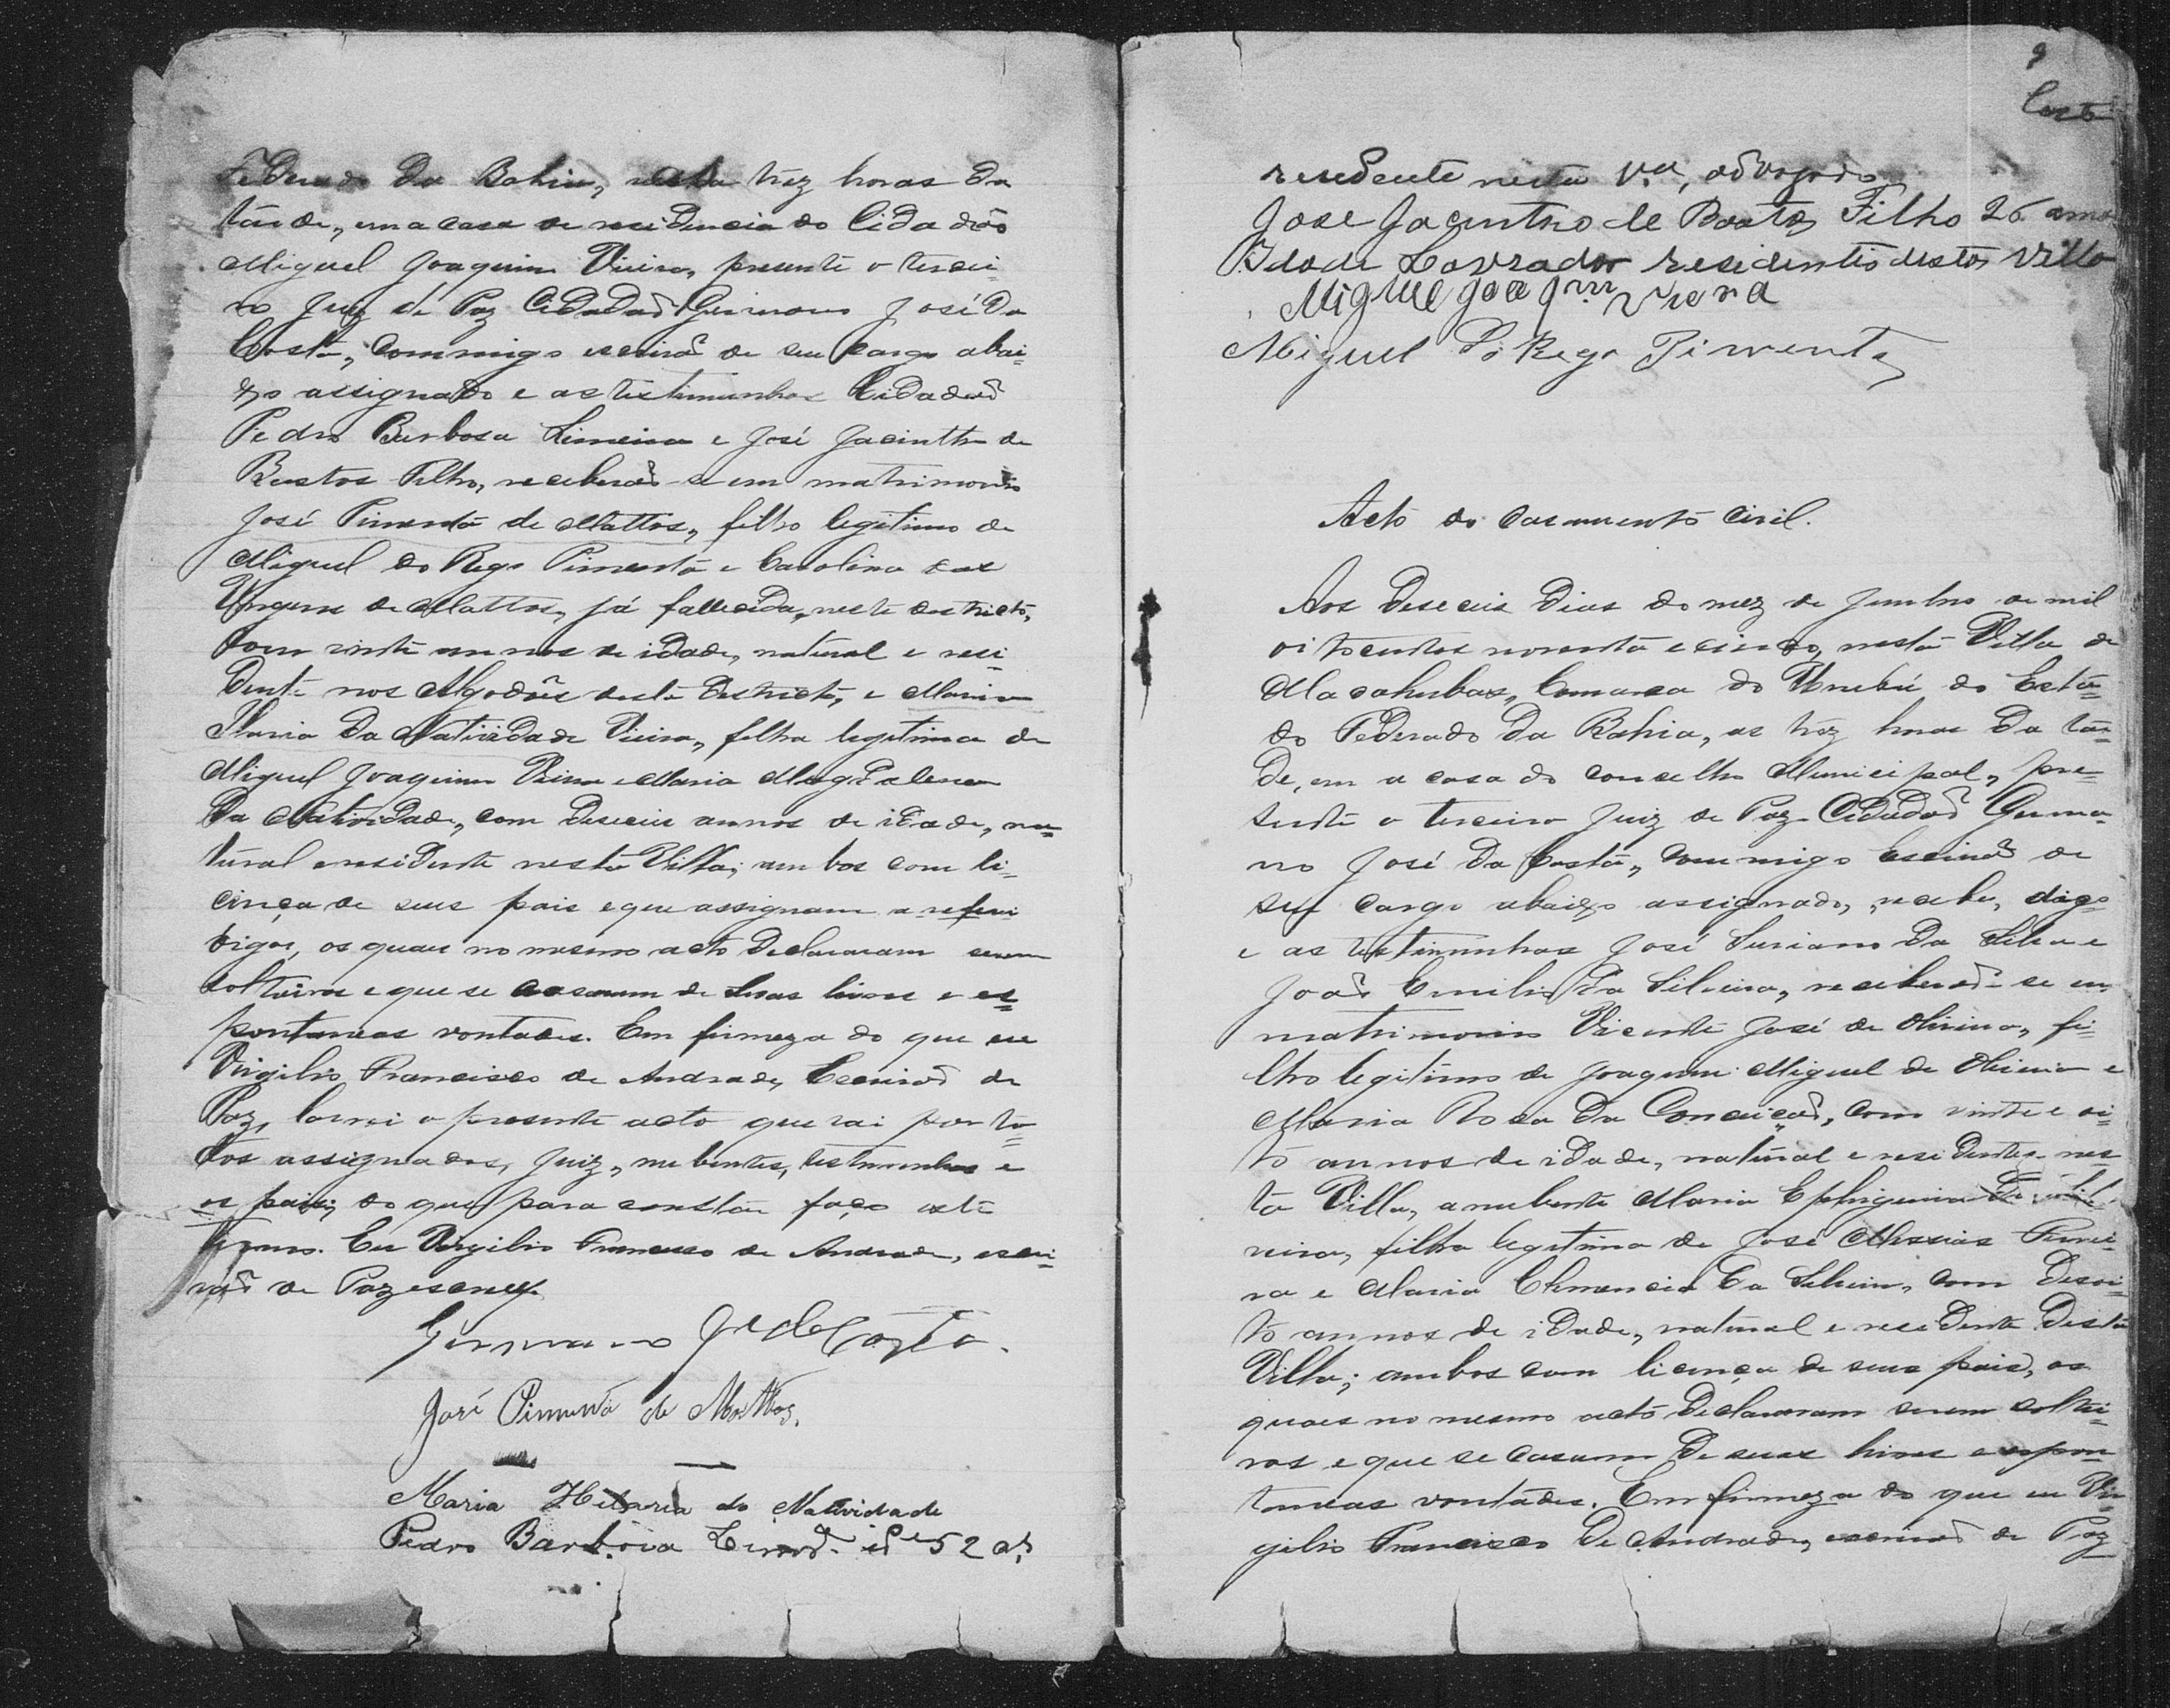 Federado da Bahia, tres horas da
tarde, em a casa de residencia do Cidadão
Miguel Joaquim Vieira, presente o tercei-
ro Juiz de Paz Cidadão Germano José da
Costa, commigo escrivão de seu cargo abai-
xo assignado e as testimunhas Cidadão
Pedro Barbosa e José Jacintho de
Bastos Filho, receberão-se em matrimonio
José Pimenta de Mattos, filho legitimo de
Miguel do Rego Pimenta e Carolina das
Virgens de Mattos, já fallecida, neste districto,
com vinte annos de idade, natural e resi-
dente nos Algodões deste Districto, e Maria
Ilaria da Natividade Vieira, filha legitima de
Miguel Joaquim Vieira e Maria Magdalena
da Natividade, com deseceis annos de idade, na-
tural e residente nesta Villa; ambos com li-
cença de seus pais e que assignam a
os quaes no mesmo acto declararam serem
solteiros e que se casavam de suas livres e es-
pontaneas vontades. Em firmeza do que eu
Virgilio Francisco de Andrade, Escrivão de
Paz, lavrei o presente acto que vai por to-
dos assignados, Juiz, nubentes, testimunhas e
os pais; do que para constar faço este
termo. Eu Virgilio Francisco de Andrade, escri-
vão de Paz escrevy.
Germano Je da Costa.
José Pimenta de Mattos.
Maria Hilaria da Natividade
Pedro Barbosa 52 as
9
Costa
residente nesta Va, advogado
Jose Jacintho de Bastos Filho 26 anno
Idade Lavrador residente desta Villa
Miguel Joaqm Viera
Miguel do Rego Pimenta
Acto do Casamento Civil.
Aos deseceis dias do mez de Junho de mil
oitocentos noventa e cinco, nesta Villa de
Macahubas, Comarca do Urubú do Esta-
do Federado da Bahia, as trez horas da tar-
de, em a casa do conselho Municipal, pre-
sente o terceiro Juiz de Paz Cidadão Germa-
no José da Costa, commigo Escrivão de
seu cargo abaixo assignado, recebe, digo
e as testimunhas José Suriano da Silva e
João Emilio da Silveira, receberão-se em
matrimonio Vicente José de Oliveira, fi-
lho legitimo de Joaquim Miguel de Oliveira e
Maria Rosa da Conceição, com vinte e oi-
to annos de idade, natural e residente nes-
ta Villa, a nubente Maria Ephigenia da Sil-
veira, filha legitima de José Messias Ferrei-
ra e Maria Clemencia da Silveira, com desoi-
to annos de idade, natural e residente desta
Villa; ambos com licença de seus pais, os
quaes no mesmo acto declararam serem soltei-
ros e que se casam de suas livres e espon-
taneas vontades. Em firmeza do que eu Vir-
gilio Francisco de Andrade, escrivão de Paz